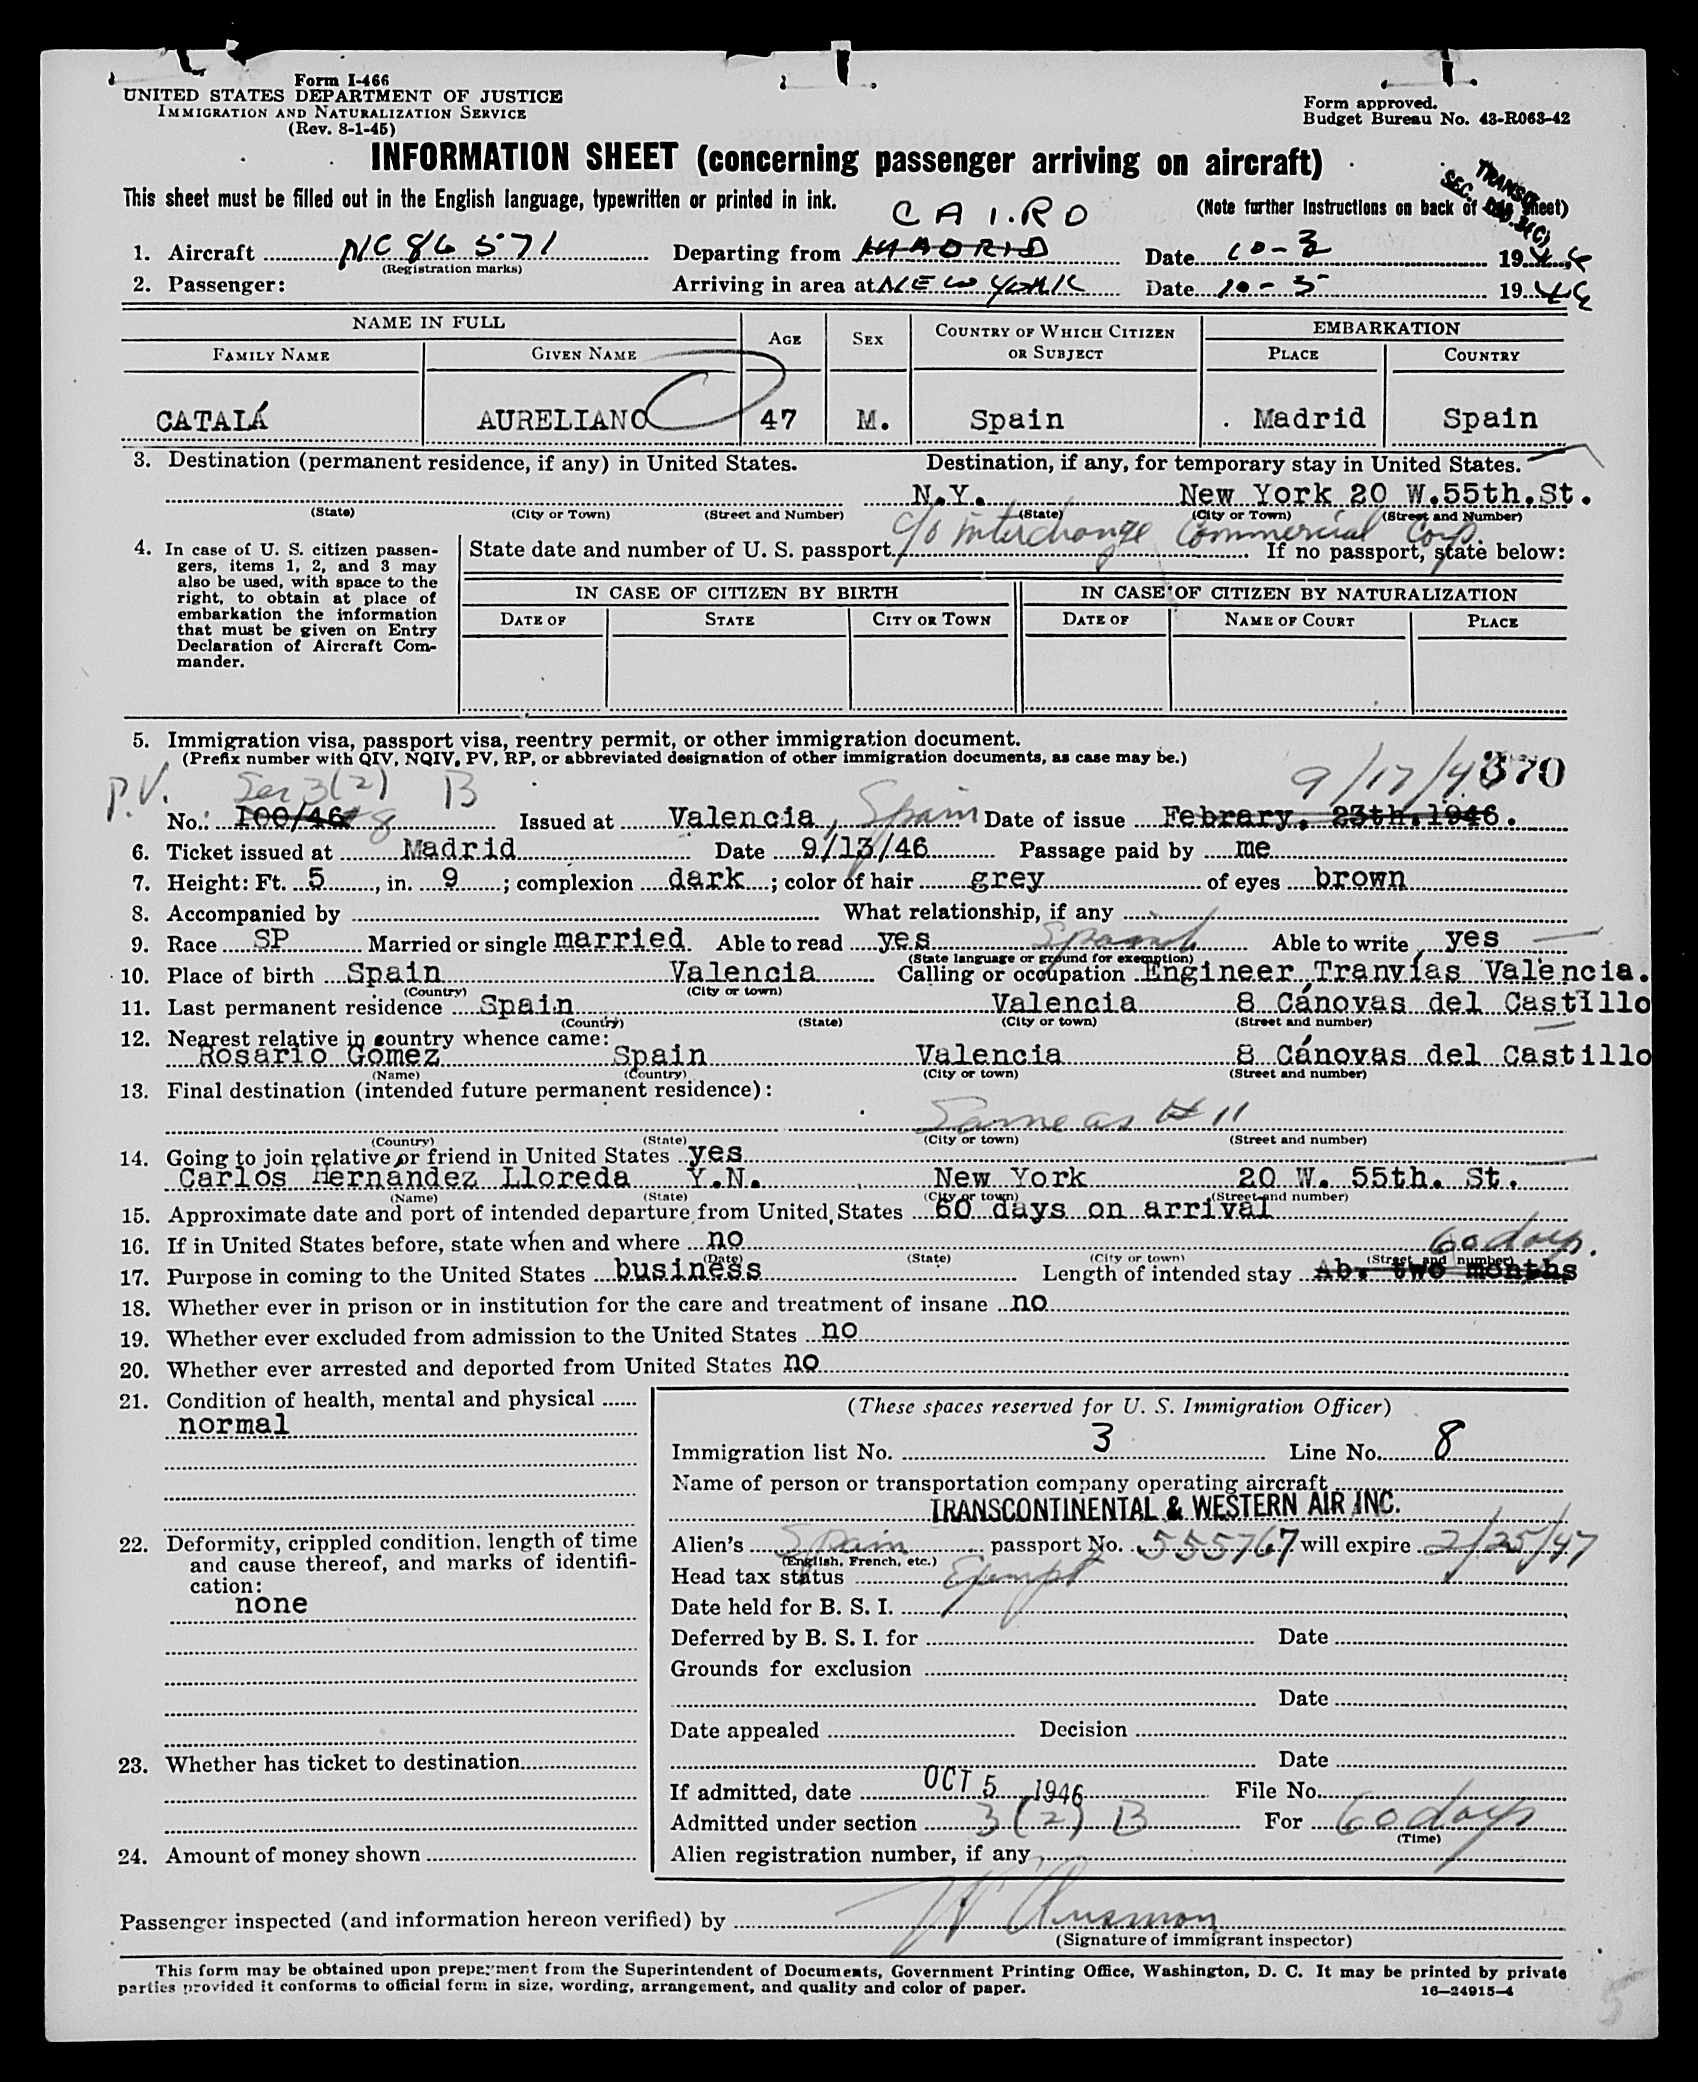 Form I-466
UNITED STATES DEPARTMENT OF JUSTICE
IMMIGRATION AND NATURALIZATION SERVICE
(Rev. 8-1-45)
Form approved.
Budget Bureau No. 43-R063-42
INFORMATION SHEET (concerning passenger arriving on aircraft)
This sheet must be filled out in the English language, typewritten or printed in ink.
(Note further instructions on back of this sheet)
TRANSIT
SEC. 3(C)
CAIRO
1. Aircraft NC 86571 Departing from MADRID Date 10-3 1946
(Registration marks)
2. Passenger: Arriving in area at NEW YORK Date 10-5 1946
NAME IN FULL AGE SEX COUNTRY OF WHICH CITIZEN OR SUBJECT EMBARKATION
FAMILY NAME GIVEN NAME PLACE COUNTRY
CATALÁ AURELIANO 47 M. Spain Madrid Spain
3. Destination (permanent residence, if any) in United States. Destination, if any, for temporary stay in United States.
N.Y. New York 20 W.55th.St.
(State) (City or Town) (Street and Number) (State) (City or Town) (Street and Number)
c/o Interchange Commercial Corp.
4. In case of U. S. citizen passengers, items 1, 2, and 3 may also be used, with space to the right, to obtain at place of embarkation the information that must be given on Entry Declaration of Aircraft Commander.
State date and number of U. S. passport If no passport, state below:
IN CASE OF CITIZEN BY BIRTH IN CASE OF CITIZEN BY NATURALIZATION
DATE OF STATE CITY OR TOWN DATE OF NAME OF COURT PLACE
5. Immigration visa, passport visa, reentry permit, or other immigration document.
(Prefix number with QIV, NQIV, PV, RP, or abbreviated designation of other immigration documents, as case may be.)
P.V. Sec 3(2) B 9/17/46 370
No. 100/46 #8 Issued at Valencia, Spain Date of issue Febrary, 23th.1946.
6. Ticket issued at Madrid Date 9/13/46 Passage paid by me
7. Height: Ft. 5, in. 9; complexion dark; color of hair grey of eyes brown
8. Accompanied by What relationship, if any
9. Race SP Married or single married Able to read yes Spanish Able to write yes
(State language or ground for exemption)
10. Place of birth Spain Valencia Calling or occupation Engineer Tranvías Valencia.
(Country) (City or town)
11. Last permanent residence Spain Valencia 8 Cánovas del Castillo
(Country) (State) (City or town) (Street and number)
12. Nearest relative in country whence came:
Rosario Gomez Spain Valencia 8 Cánovas del Castillo
(Name) (Country) (City or town) (Street and number)
13. Final destination (intended future permanent residence):
Same as # 11
(Country) (State) (City or town) (Street and number)
14. Going to join relative or friend in United States yes
Carlos Hernandez Lloreda Y.N. New York 20 W. 55th. St.
(Name) (State) (City or town) (Street and number)
15. Approximate date and port of intended departure from United States 60 days on arrival
16. If in United States before, state when and where no
(Date) (State) (City or town) (Street and number)
60 days.
17. Purpose in coming to the United States business Length of intended stay Ab. two months
18. Whether ever in prison or in institution for the care and treatment of insane no
19. Whether ever excluded from admission to the United States no
20. Whether ever arrested and deported from United States no
21. Condition of health, mental and physical
normal
22. Deformity, crippled condition, length of time and cause thereof, and marks of identification:
none
23. Whether has ticket to destination
24. Amount of money shown
(These spaces reserved for U. S. Immigration Officer)
Immigration list No. 3 Line No. 8
Name of person or transportation company operating aircraft
TRANSCONTINENTAL & WESTERN AIR INC.
Alien's Spain passport No. 555767 will expire 2/25/47
(English, French, etc.)
Head tax status Exempt
Date held for B. S. I.
Deferred by B. S. I. for Date
Grounds for exclusion
Date
Date appealed Decision
Date
If admitted, date OCT 5 1946 File No.
Admitted under section 3(2) B For 60 days
(Time)
Alien registration number, if any
Passenger inspected (and information hereon verified) by
(Signature of immigrant inspector)
This form may be obtained upon prepayment from the Superintendent of Documents, Government Printing Office, Washington, D. C. It may be printed by private
parties provided it conforms to official form in size, wording, arrangement, and quality and color of paper.
16—24915-4
5